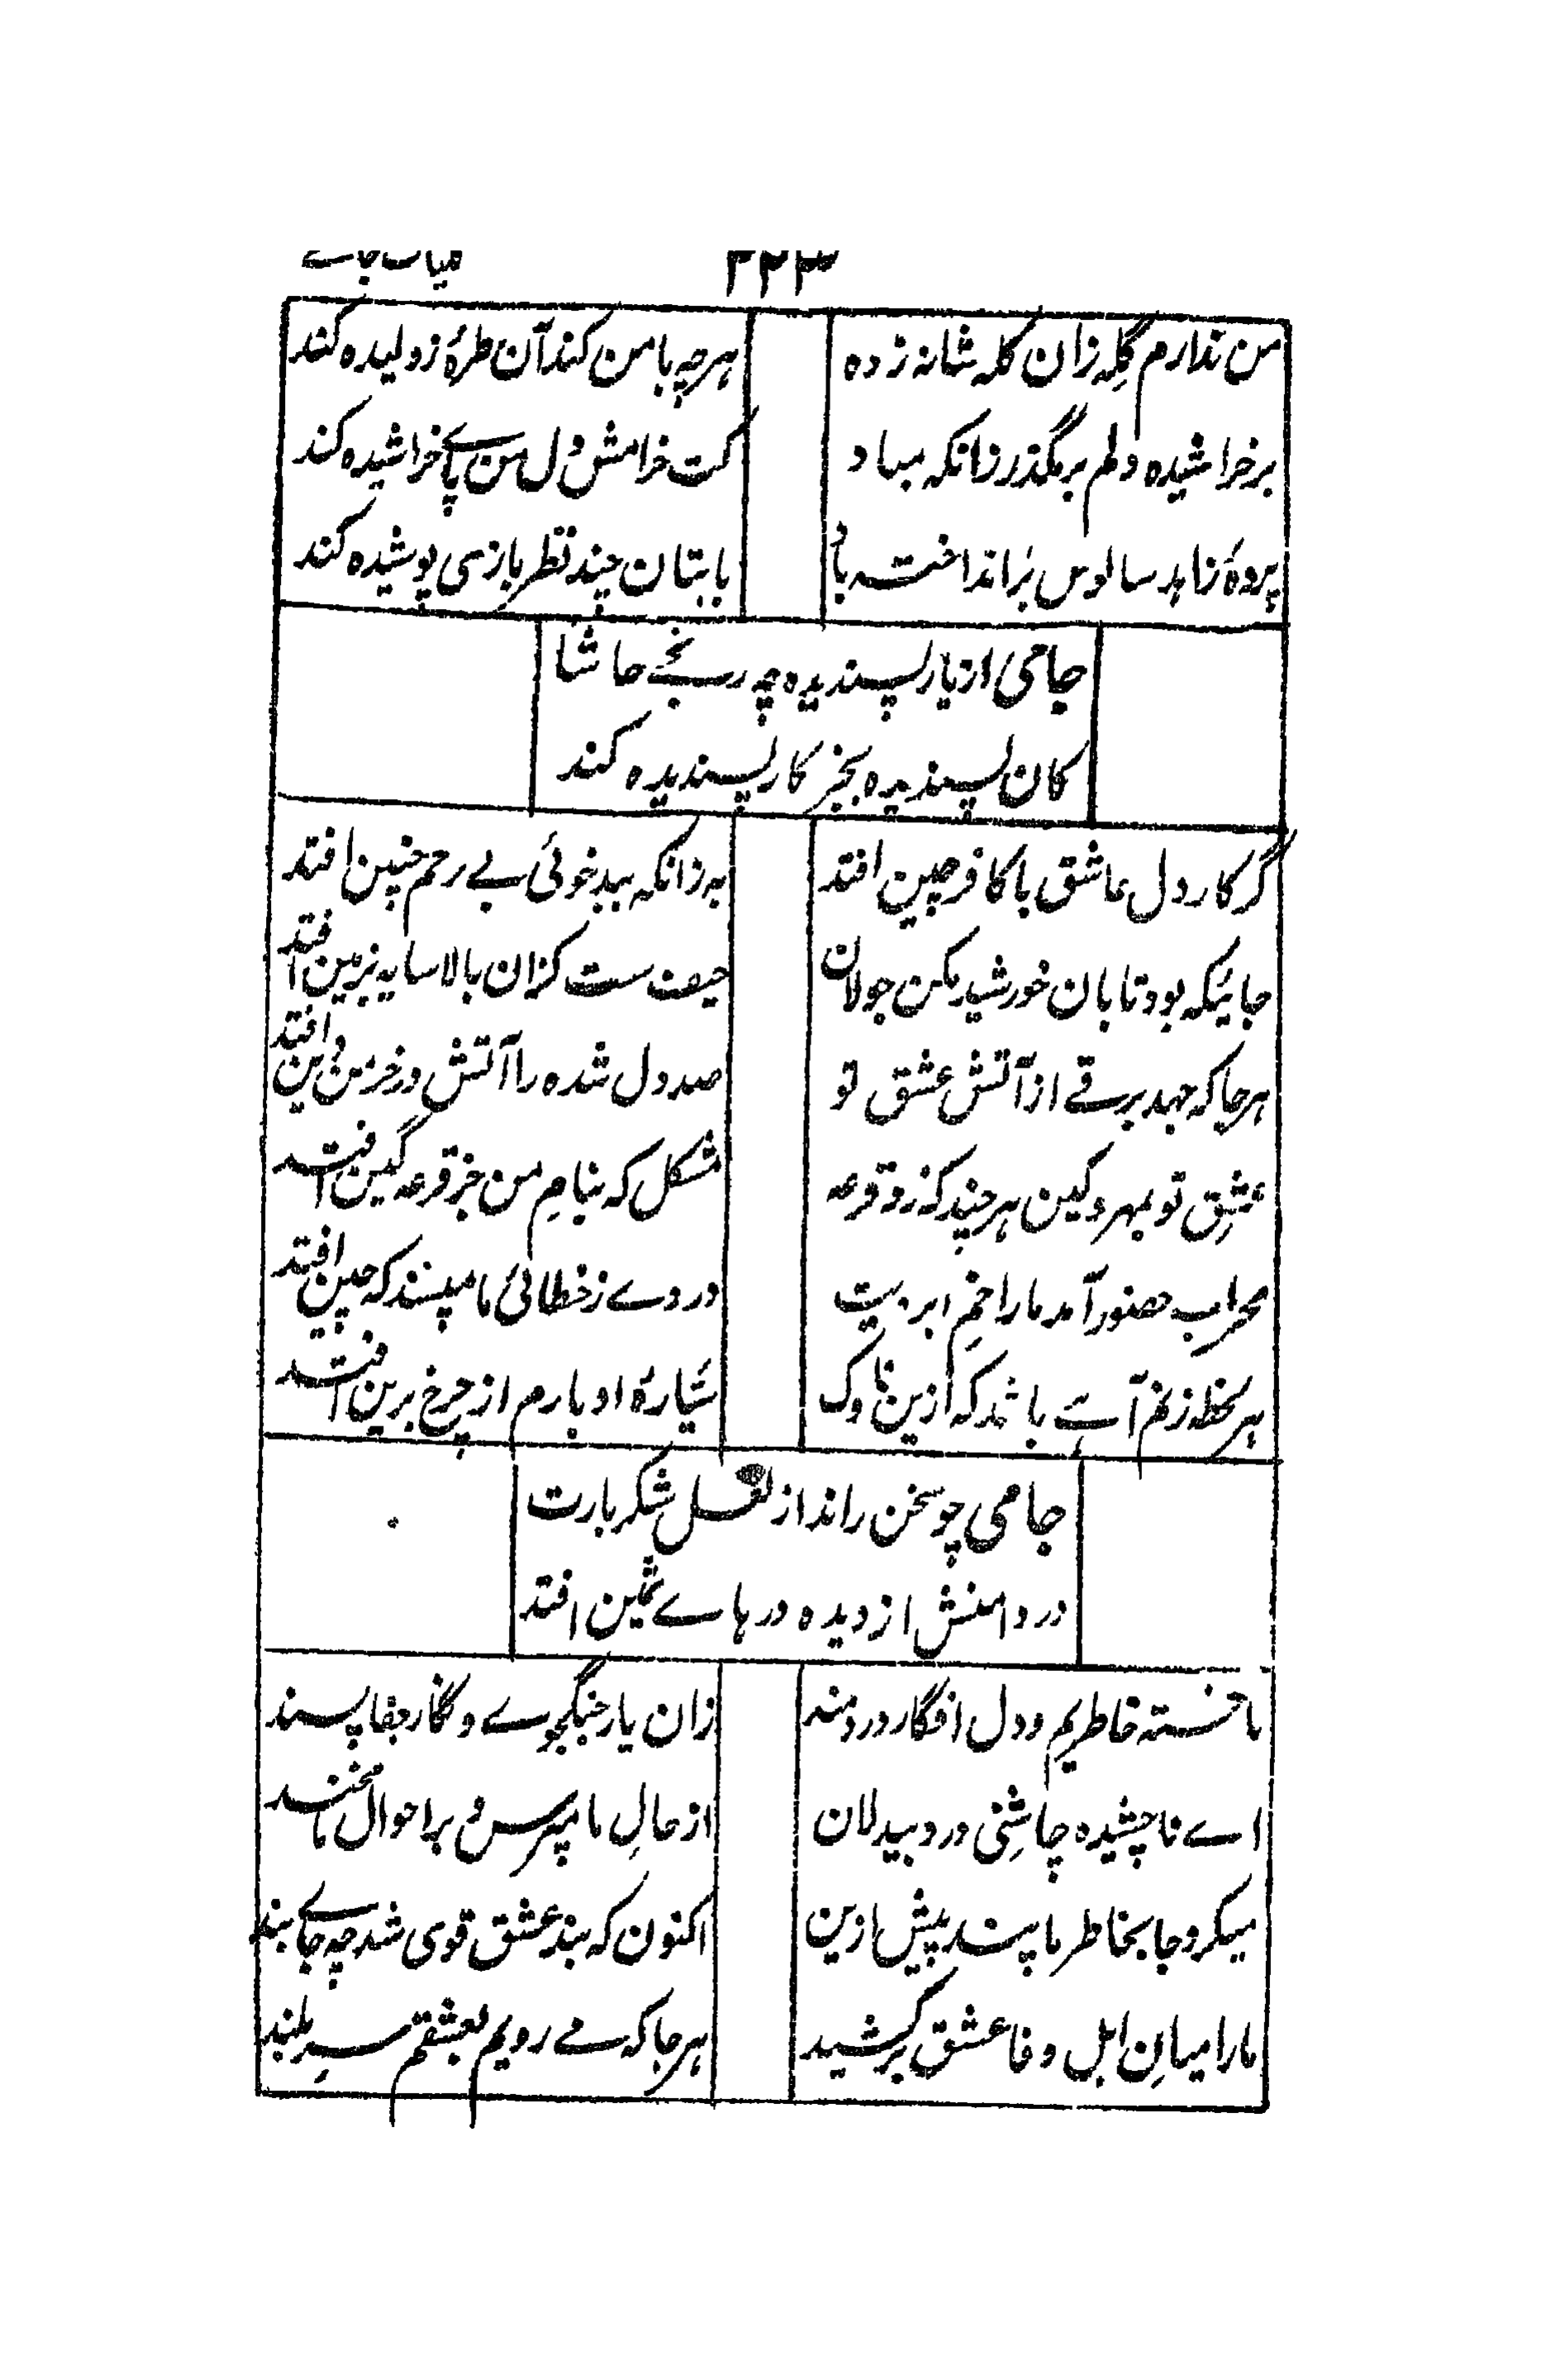 ۲۲۳
من ندارم گِلہ زان کلہ شانہ زدہ
ہرچہ با من کند آن طرۂ ژولیدہ کند
بر خراشیدہ دلم برمگذر زانکہ مباد
کت خرامش دل من پاے خراشیدہ کند
پردۂ زاہد سالوس برانداختہ باد
با بتان چند نظر بازی پوشیدہ کند
جامی از یار پسندیدہ چہ رنجے حاشا
کان پسندیدہ بجز کار پسندیدہ کند
گر کار دل عاشق با کافر چین افتد
بہ زانکہ ببدخوئی بے رحم چنین افتد
جائیکہ بود تابان خورشید مکن جولان
حیف ست کزان بالا سایہ بزمین افتد
ہرجا کہ جہد برقے از آتش عشق تو
صد دل شدہ را آتش در خرمن دین افتد
عشقِ تو بمہر و کین ہر چند کہ زد قرعہ
مشکل کہ بنامِ من جز قرعہ کین افتد
محراب حضور آمد ما را خمِ ابرویت
در وے ز خطائی ما مپسند کہ چین افتد
ہر لحظہ زنم آہے باشد کہ ازین ناوک
سیّارۂ ادبارم از چرخ برین افتد
جامی چو سخن راند از لعل شکر بارت
در دامنش از دیدہ درہاے ثمین افتد
ما خستہ خاطریم و دل افگار و دردمند
زان یار جنگجوے و نگار جفا پسند
اے ناچشیدہ چاشنِی درد بیدلان
از حالِ ما مپرس و بر احوال ما مخند
میکرد جا بخاطر ما پند پیش ازین
اکنون کہ بند عشق قوی شد چہ جاے پند
ما را میانِ اہل وفا عشق برکشید
ہرجا کہ مے رویم بعشقم سرِ بلند